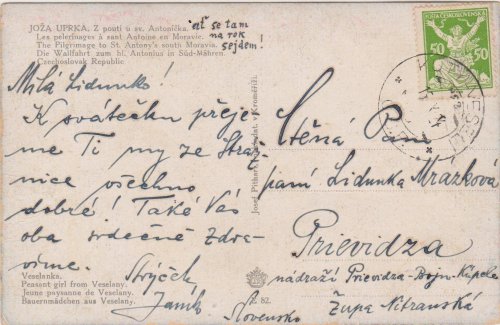 JOŽA UPRKA. Z pouti u sv. Antoníčka.
Les pelerinages à sant Antoine en Moravie.
The Pilgrimage to St. Antony's south Moravia.
Die Wallfahrt zum hl. Antonius in Süd-Mähren.
Czechoslovak Republic
ať se tam
na rok
sejdem!
POŠTA ČESKOSLOVENSKÁ
50 50
Milá Lidunko!
K svátečku přeje-
me Ti my ze Stráž-
nice všechno
dobré! Také Vás
oba srdečně zdra-
víme.
Strýček
Janík
Veselanka.
Peasant girl from Veselany.
Jeune paysanne de Veselany.
Bauernmädchen aus Veselany.
Josef Píthart, v Kroměříži.
Č. 82.
Ctěná Paní
paní Lidunka Mrazková
Prievidza
nádraží Prievidza-Bojn. Kúpele
Župa Nitranská
Slovensko